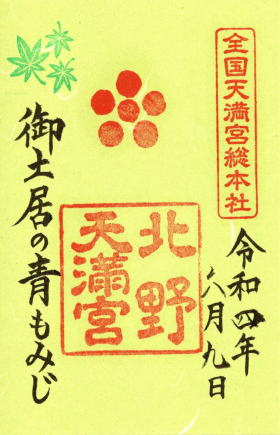 全国天満宮総本社
令和四年
六月九日
北野
天満宮
御土居の青もみじ